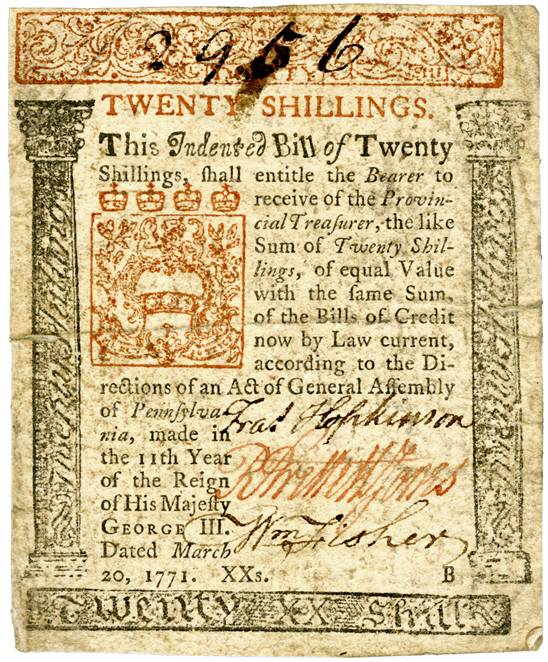 2956
TWENTY SHILLINGS.
This Indented Bill of Twenty
Shillings, ſhall entitle the Bearer to
receive of the Provin-
cial Treaſurer, the like
Sum of Twenty Shil-
lings, of equal Value
with the ſame Sum,
of the Bills of Credit
now by Law current,
according to the Di-
rections of an Act of General Aſſembly
of Pennſylva-
nia, made in
the 11th Year
of the Reign
of His Majeſty
GEORGE III.
Dated March
20, 1771. XXs.
Fraˢ Hopkinson
Wm Fisher
B
Twenty XX Shill